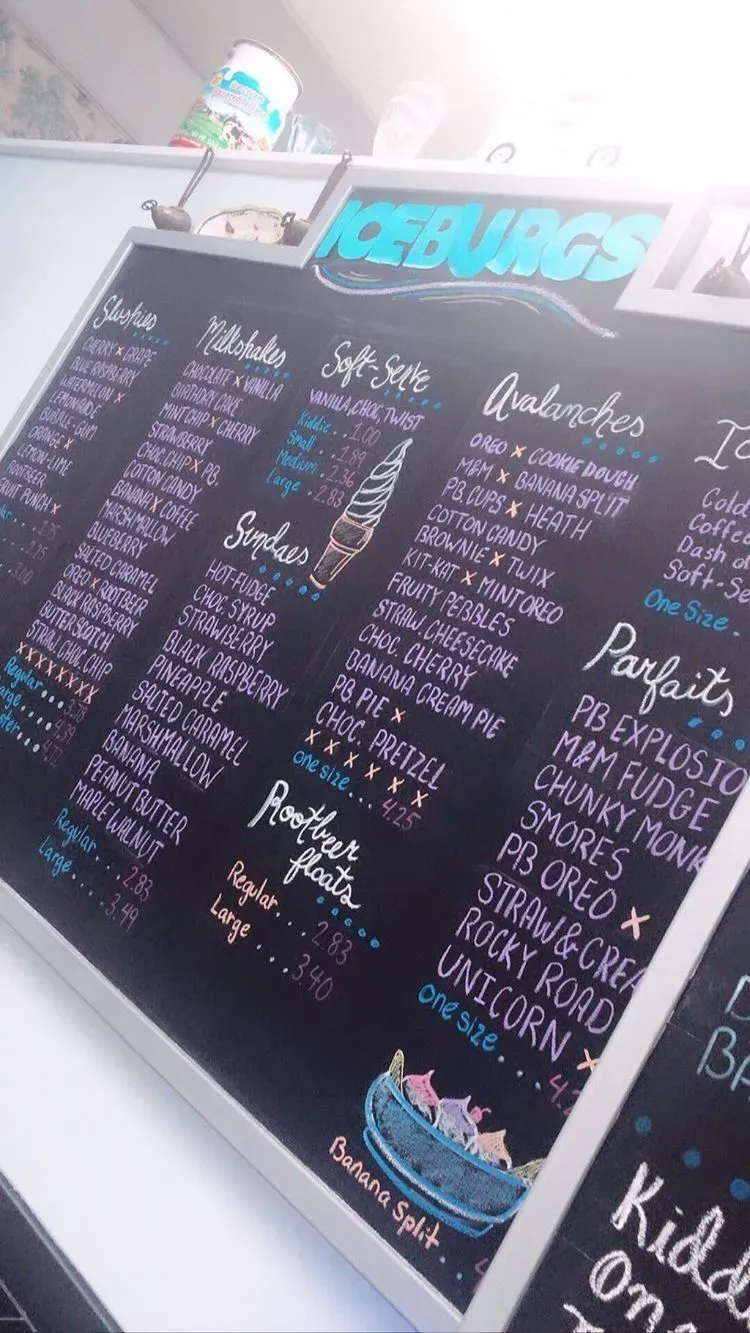 ICEBURGS
Slushies
CHERRY x GRAPE
BLUE RASPBERRY
WATERMELON x
LEMONADE
BUBBLE-GUM
ORANGE x
LEMON-LIME
ROOTBEER
FRUIT PUNCH x
3.00
Milkshakes
CHOCOLATE x VANILLA
BIRTHDAY CAKE
MINT CHIP x CHERRY
STRAWBERRY
CHOC. CHIP x PB.
COTTON CANDY
BANANA x COFFEE
MARSHMALLOW
BLUEBERRY
SALTED CARAMEL
OREO x ROOTBEER
BLACK RASPBERRY
BUTTERSCOTCH
STRAW. CHOC. CHIP
XXXXXXXX
Regular...
arge...
Soft-Serve
VANILLA, CHOC, TWIST
Kiddie...1.00
Small...1.89
Medium...2.36
Large...2.83
Sundaes
HOT-FUDGE
CHOC SYRUP
STRAWBERRY
BLACK RASPBERRY
PINEAPPLE
SALTED CARAMEL
MARSHMALLOW
BANANA
PEANUT BUTTER
MAPLE WALNUT
Regular...2.83
Large....3.49
Avalanches
OREO x COOKIE DOUGH
M&M x BANANA SPLIT
P.B. CUPS x HEATH
COTTON CANDY
BROWNIE x TWIX
KIT-KAT x MINT OREO
FRUITY PEBBLES
STRAW. CHEESECAKE
CHOC. CHERRY
BANANA CREAM PIE
PB PIE x
CHOC. PRETZEL
X X X X X X
one size... 4.25
Rootbeer
floats
Regular...2.83
Large....3.40
Cold
Coffee
Dash o
Soft-Se
One Size.
Parfaits
PB EXPLOSIO
M&M FUDGE
CHUNKY MONK
SMORES
PB OREO x
STRAW & CREA
ROCKY ROAD
UNICORN x
one size... 4.2
Banana Split..
BA
Kidd
on